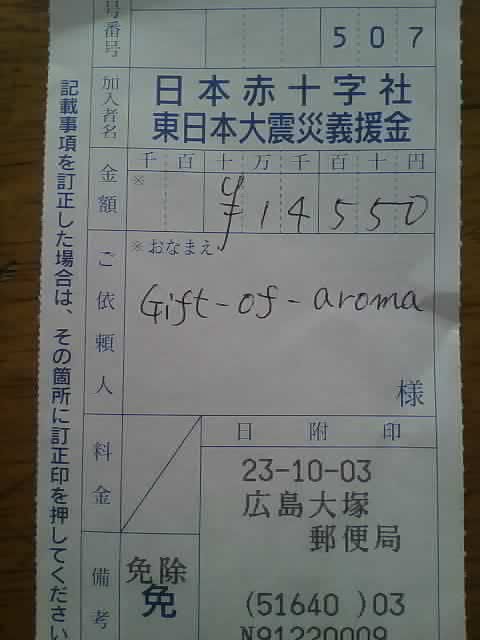 号番号
507
加入者名
日本赤十字社
東日本大震災義援金
金額
千百十万千百十円
※
¥14550
ご依頼人
※おなまえ
Gift-of-aroma
様
料金
日附印
23-10-03
広島大塚
郵便局
(51640 )03
N91220009
備考
免除
免
記載事項を訂正した場合は、その箇所に訂正印を押してください